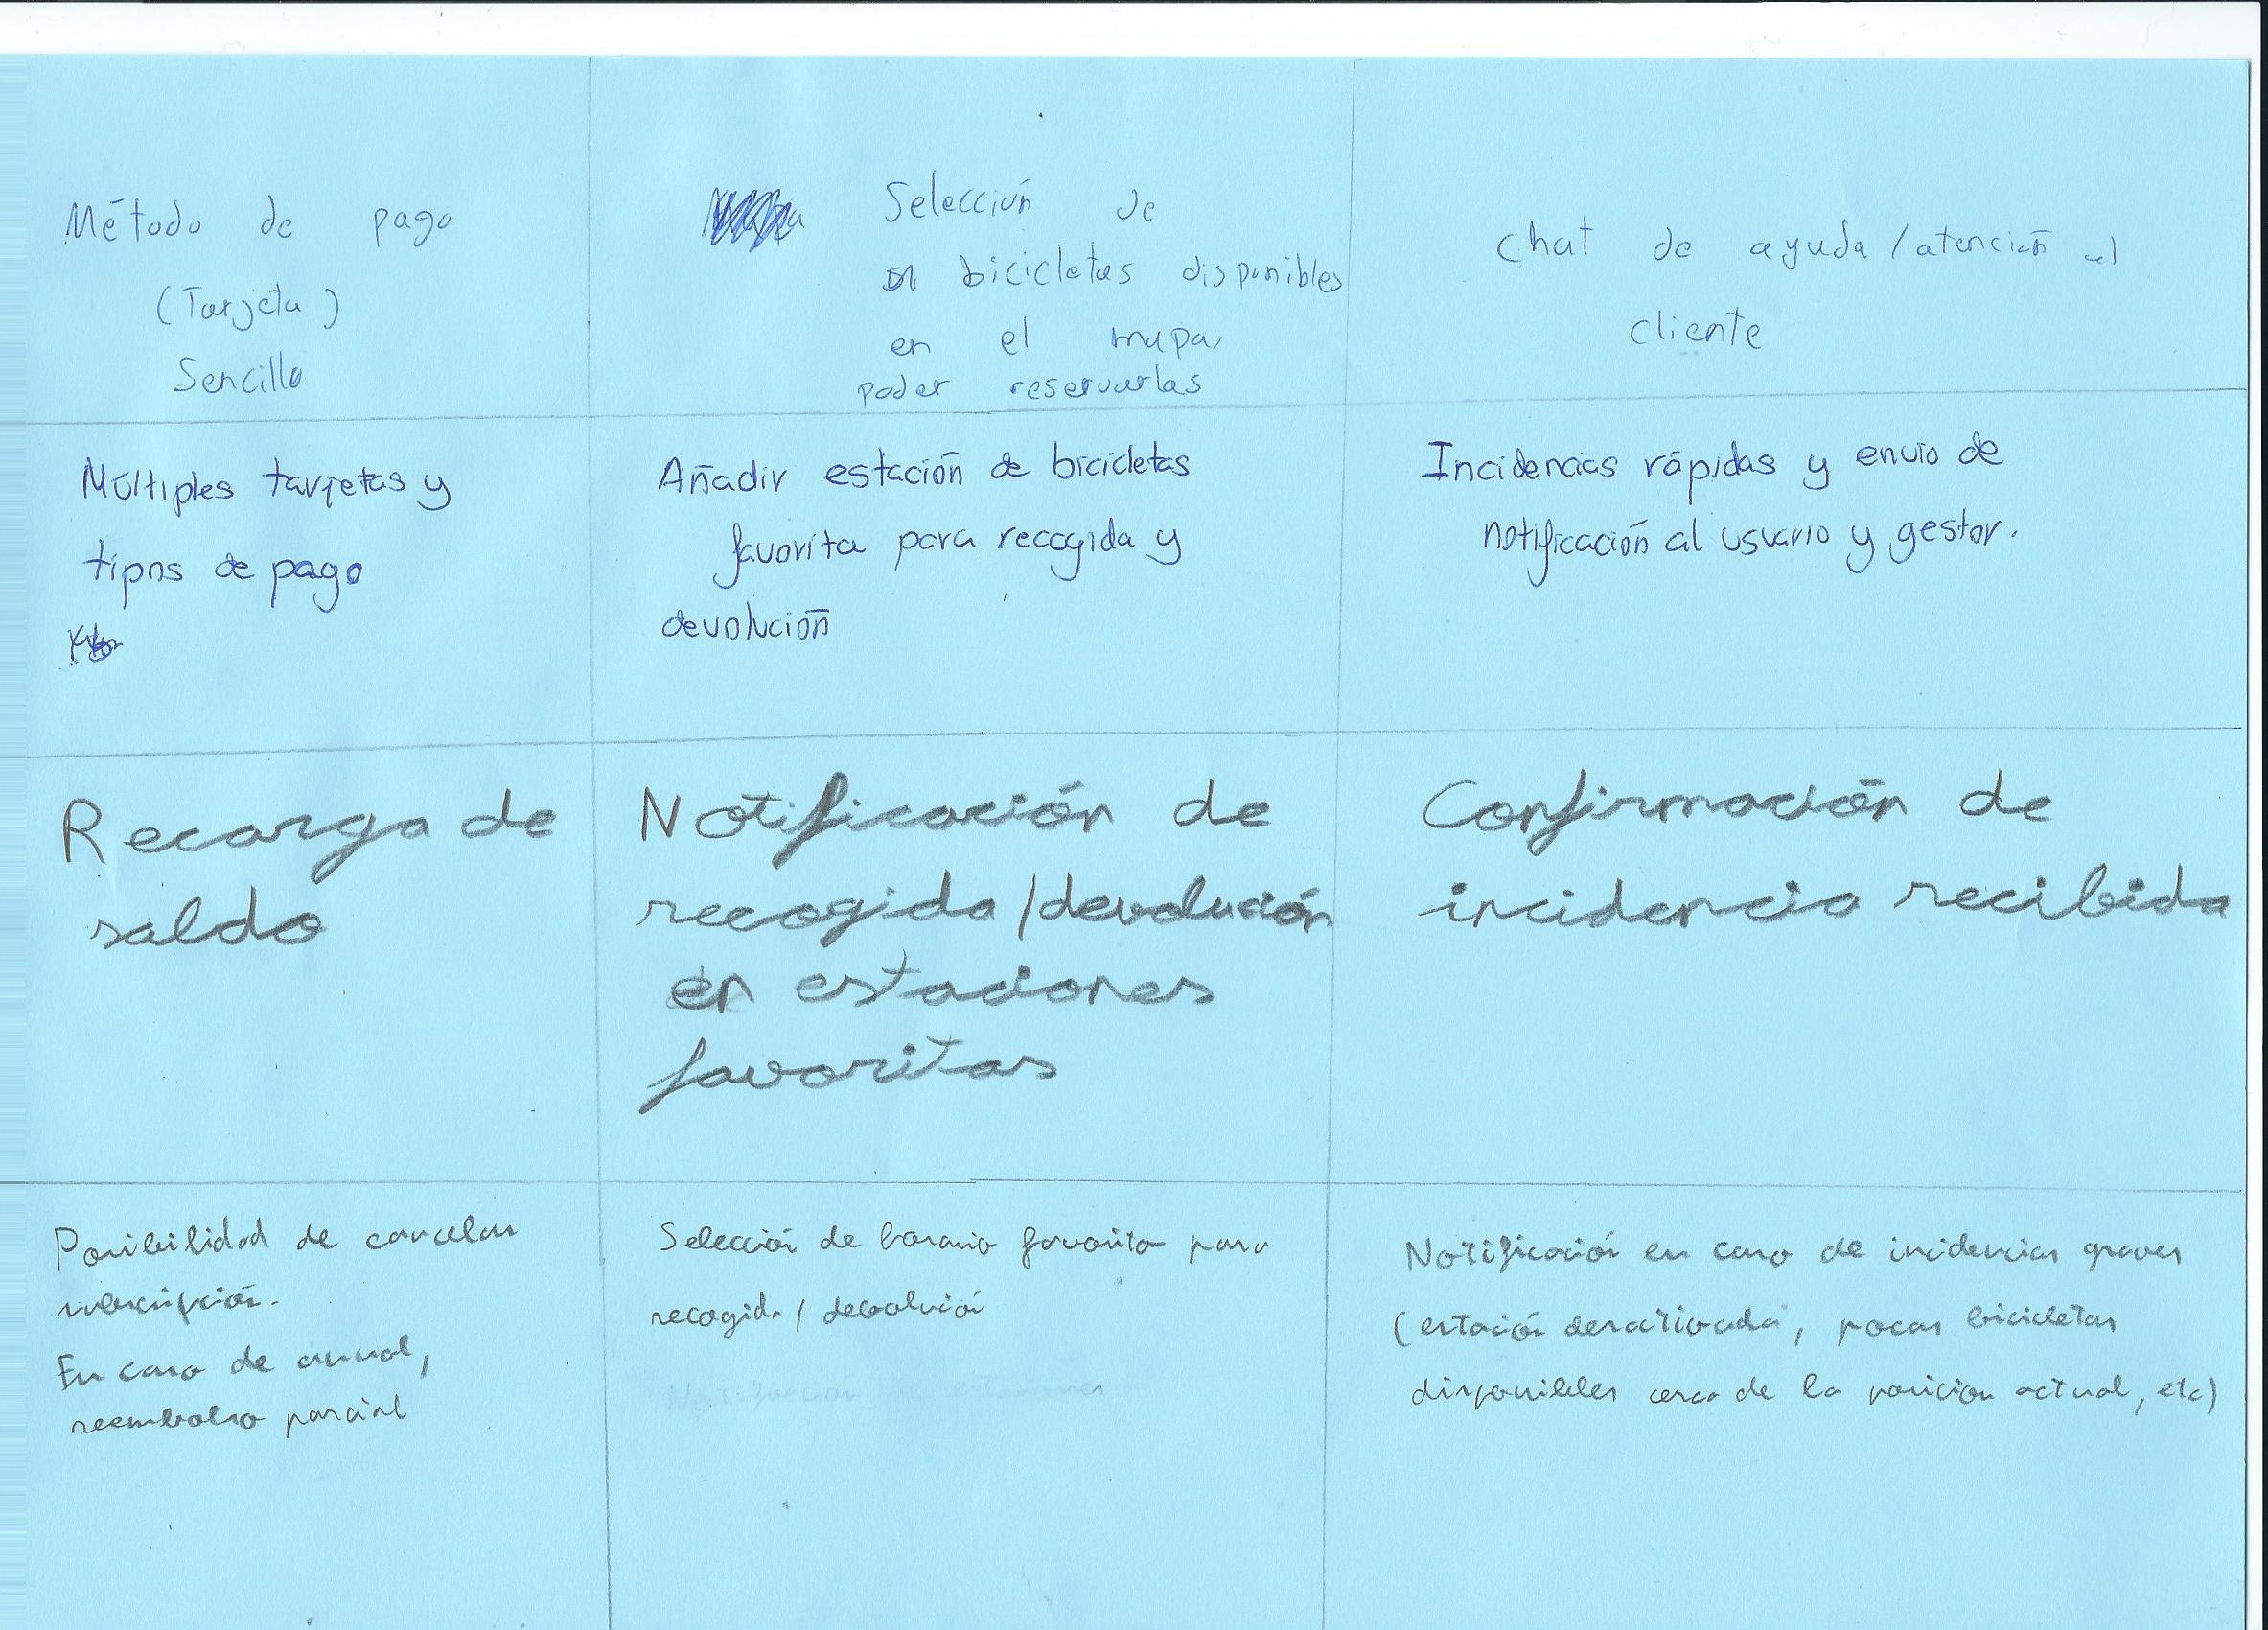 Método de pago
(Tarjeta)
Sencillo
Selección de
bicicletas disponibles
en el mapa,
poder reservarlas
Chat de ayuda / atención al
cliente
Múltiples tarjetas y
tipos de pago
Añadir estación de bicicletas
favorita para recogida y
devolución
Incidencias rápidas y envío de
notificación al usuario y gestor.
Recarga de
saldo
Notificación de
recogida / devolución
en estaciones
favoritas
Confirmación de
incidencia recibida
Posibilidad de cancelar
subscripción.
En caso de anual,
reembolso parcial
Selección de horario favorito para
recogida / devolución
Notificación en caso de incidencias graves
(estación desactivada, pocas bicicletas
disponibles cerca de la posición actual, etc)